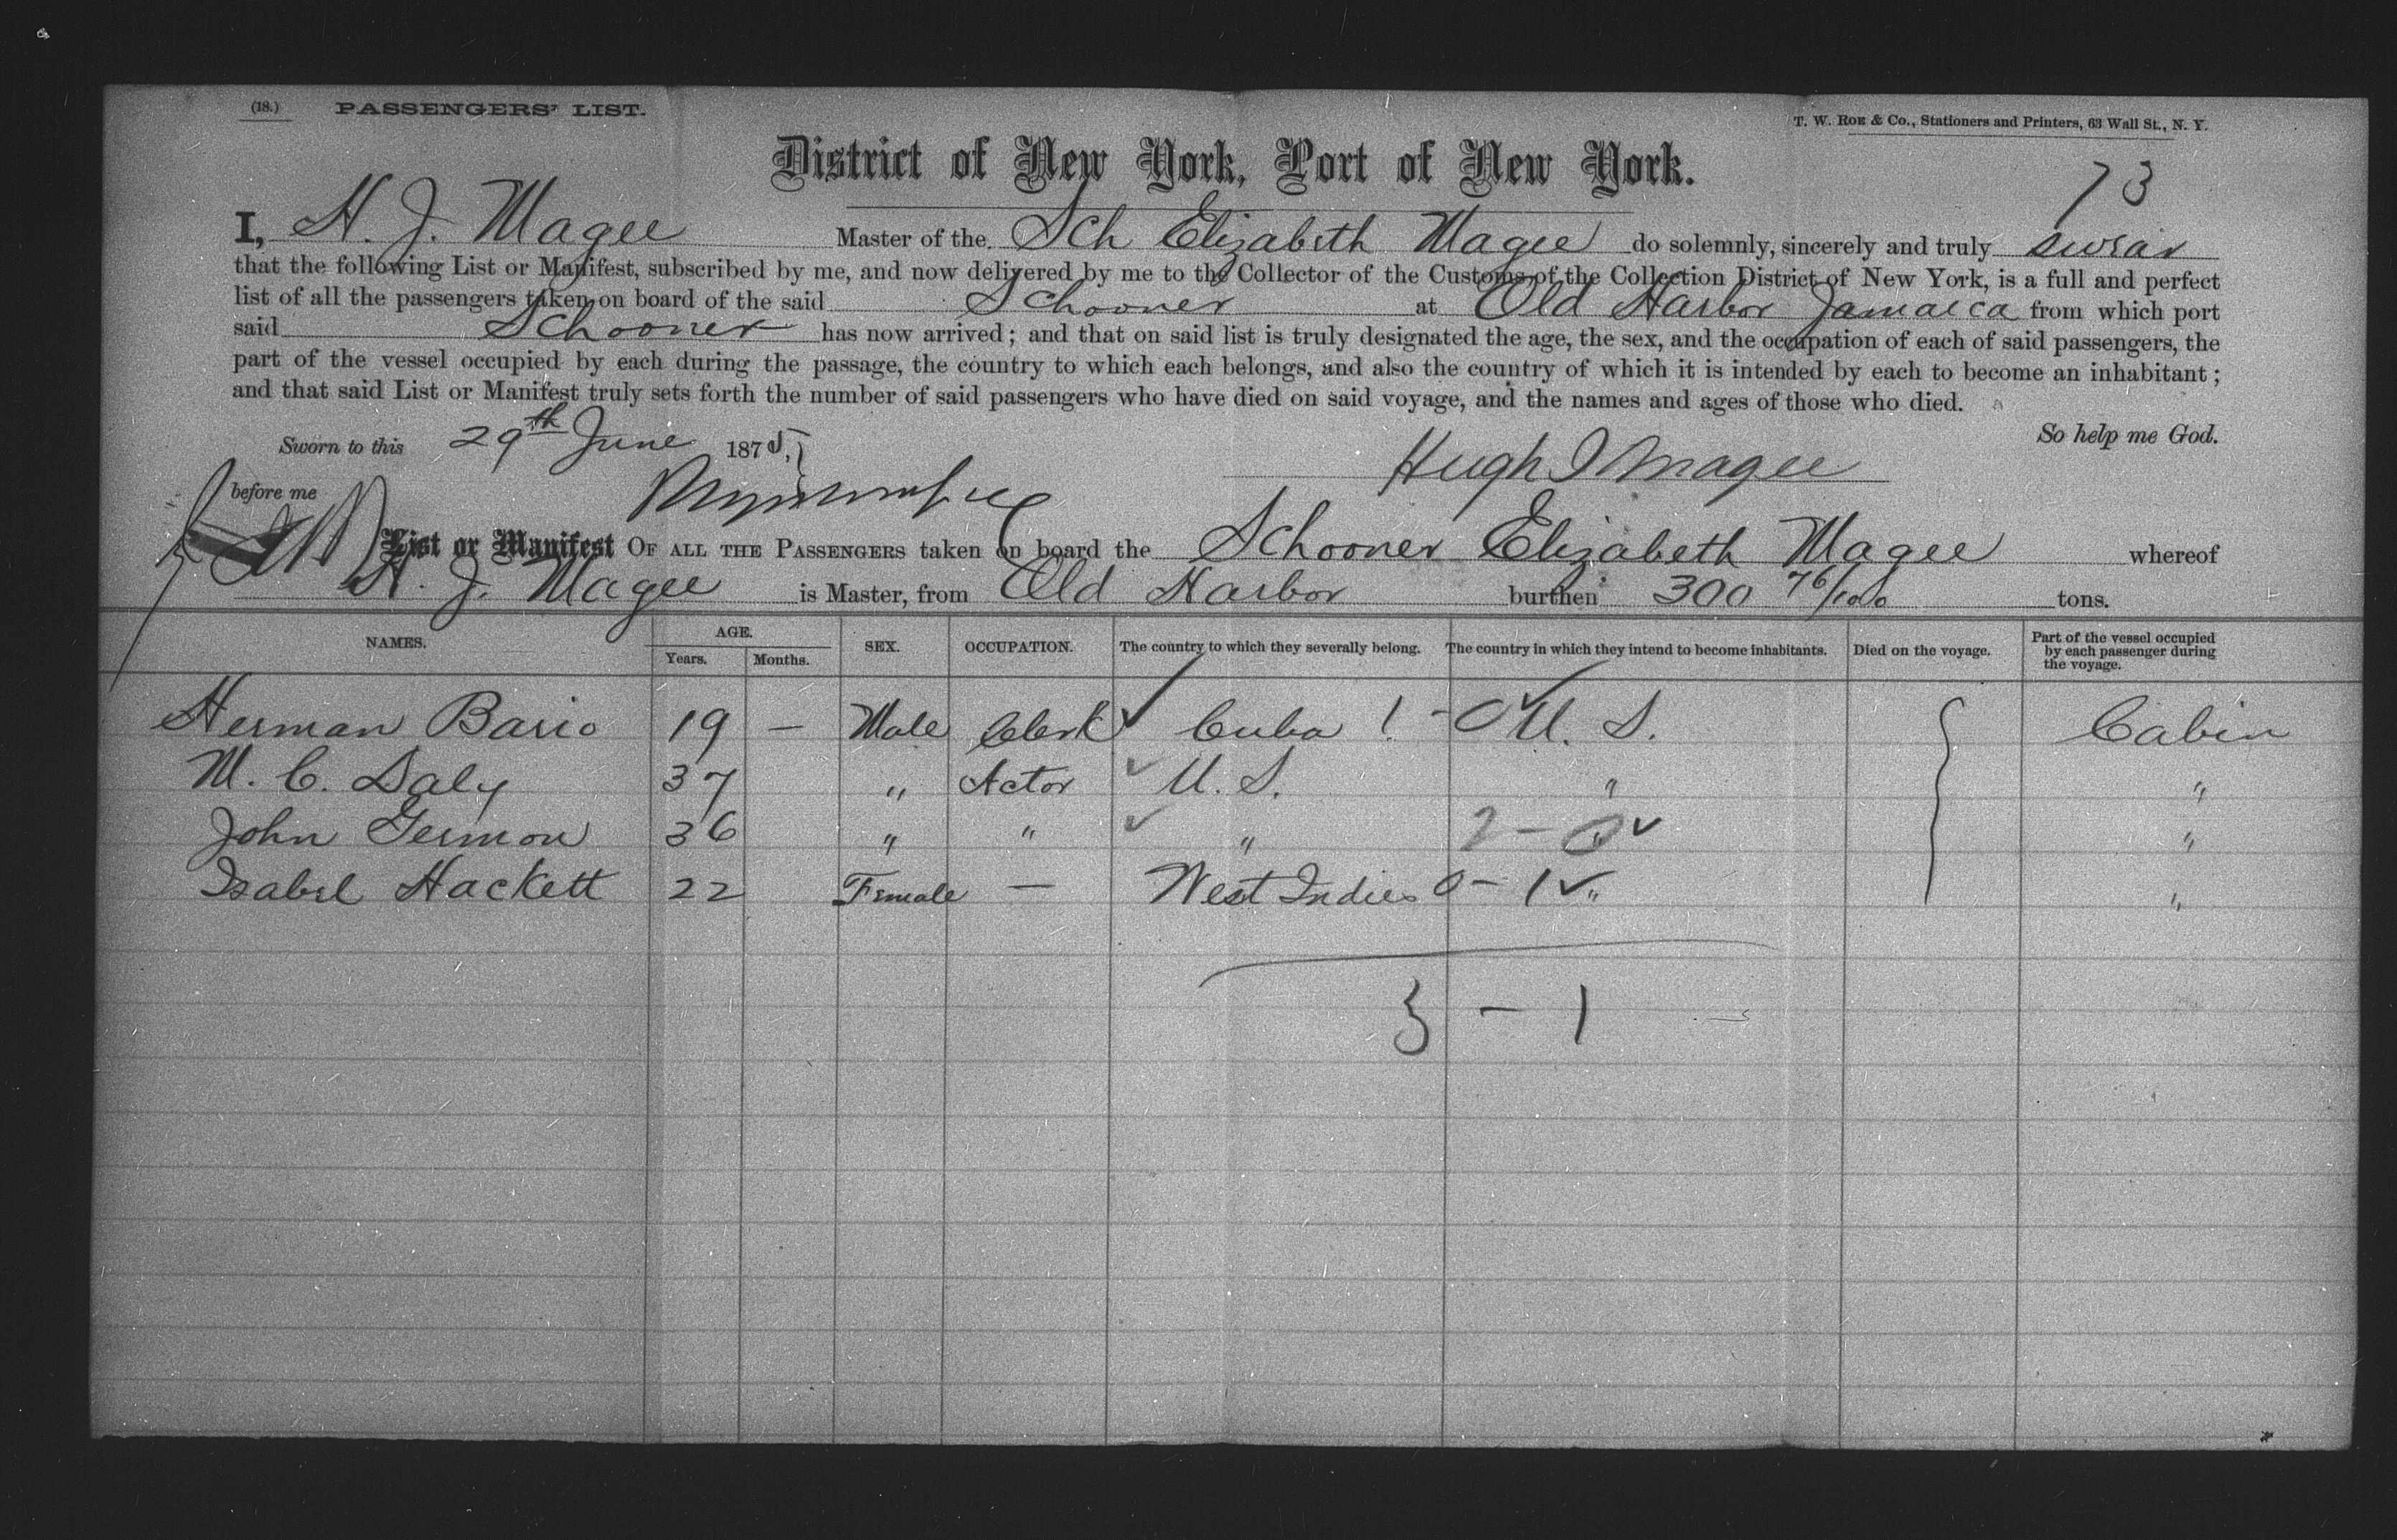 (18.) PASSENGERS' LIST.
T. W. ROE & Co., Stationers and Printers, 63 Wall St., N. Y.
District of New York, Port of New York.
73
I, H. J. Magee Master of the Sch Elizabeth Magee do solemnly, sincerely and truly swear
that the following List or Manifest, subscribed by me, and now delivered by me to the Collector of the Customs of the Collection District of New York, is a full and perfect
list of all the passengers taken on board of the said Schooner at Old Harbor Jamaica from which port
said Schooner has now arrived; and that on said list is truly designated the age, the sex, and the occupation of each of said passengers, the
part of the vessel occupied by each during the passage, the country to which each belongs, and also the country of which it is intended by each to become an inhabitant;
and that said List or Manifest truly sets forth the number of said passengers who have died on said voyage, and the names and ages of those who died.
So help me God.
Sworn to this 29th June 1875,
Hugh J Magee
before me
List or Manifest OF ALL THE PASSENGERS taken on board the Schooner Elizabeth Magee whereof
H. J. Magee is Master, from Old Harbor burthen 300 76/100 tons.
NAMES. AGE. Years. Months. SEX. OCCUPATION. The country to which they severally belong. The country in which they intend to become inhabitants. Died on the voyage. Part of the vessel occupied by each passenger during the voyage.
Herman Bario 19 — Male Clerk Cuba 1 - 0 U. S. Cabin
M. C. Daly 37 " Actor U. S. " "
John Germon 36 " " " 2 - 0 " "
Isabel Hackett 22 Female — West Indies 0 - 1 " "
3 - 1